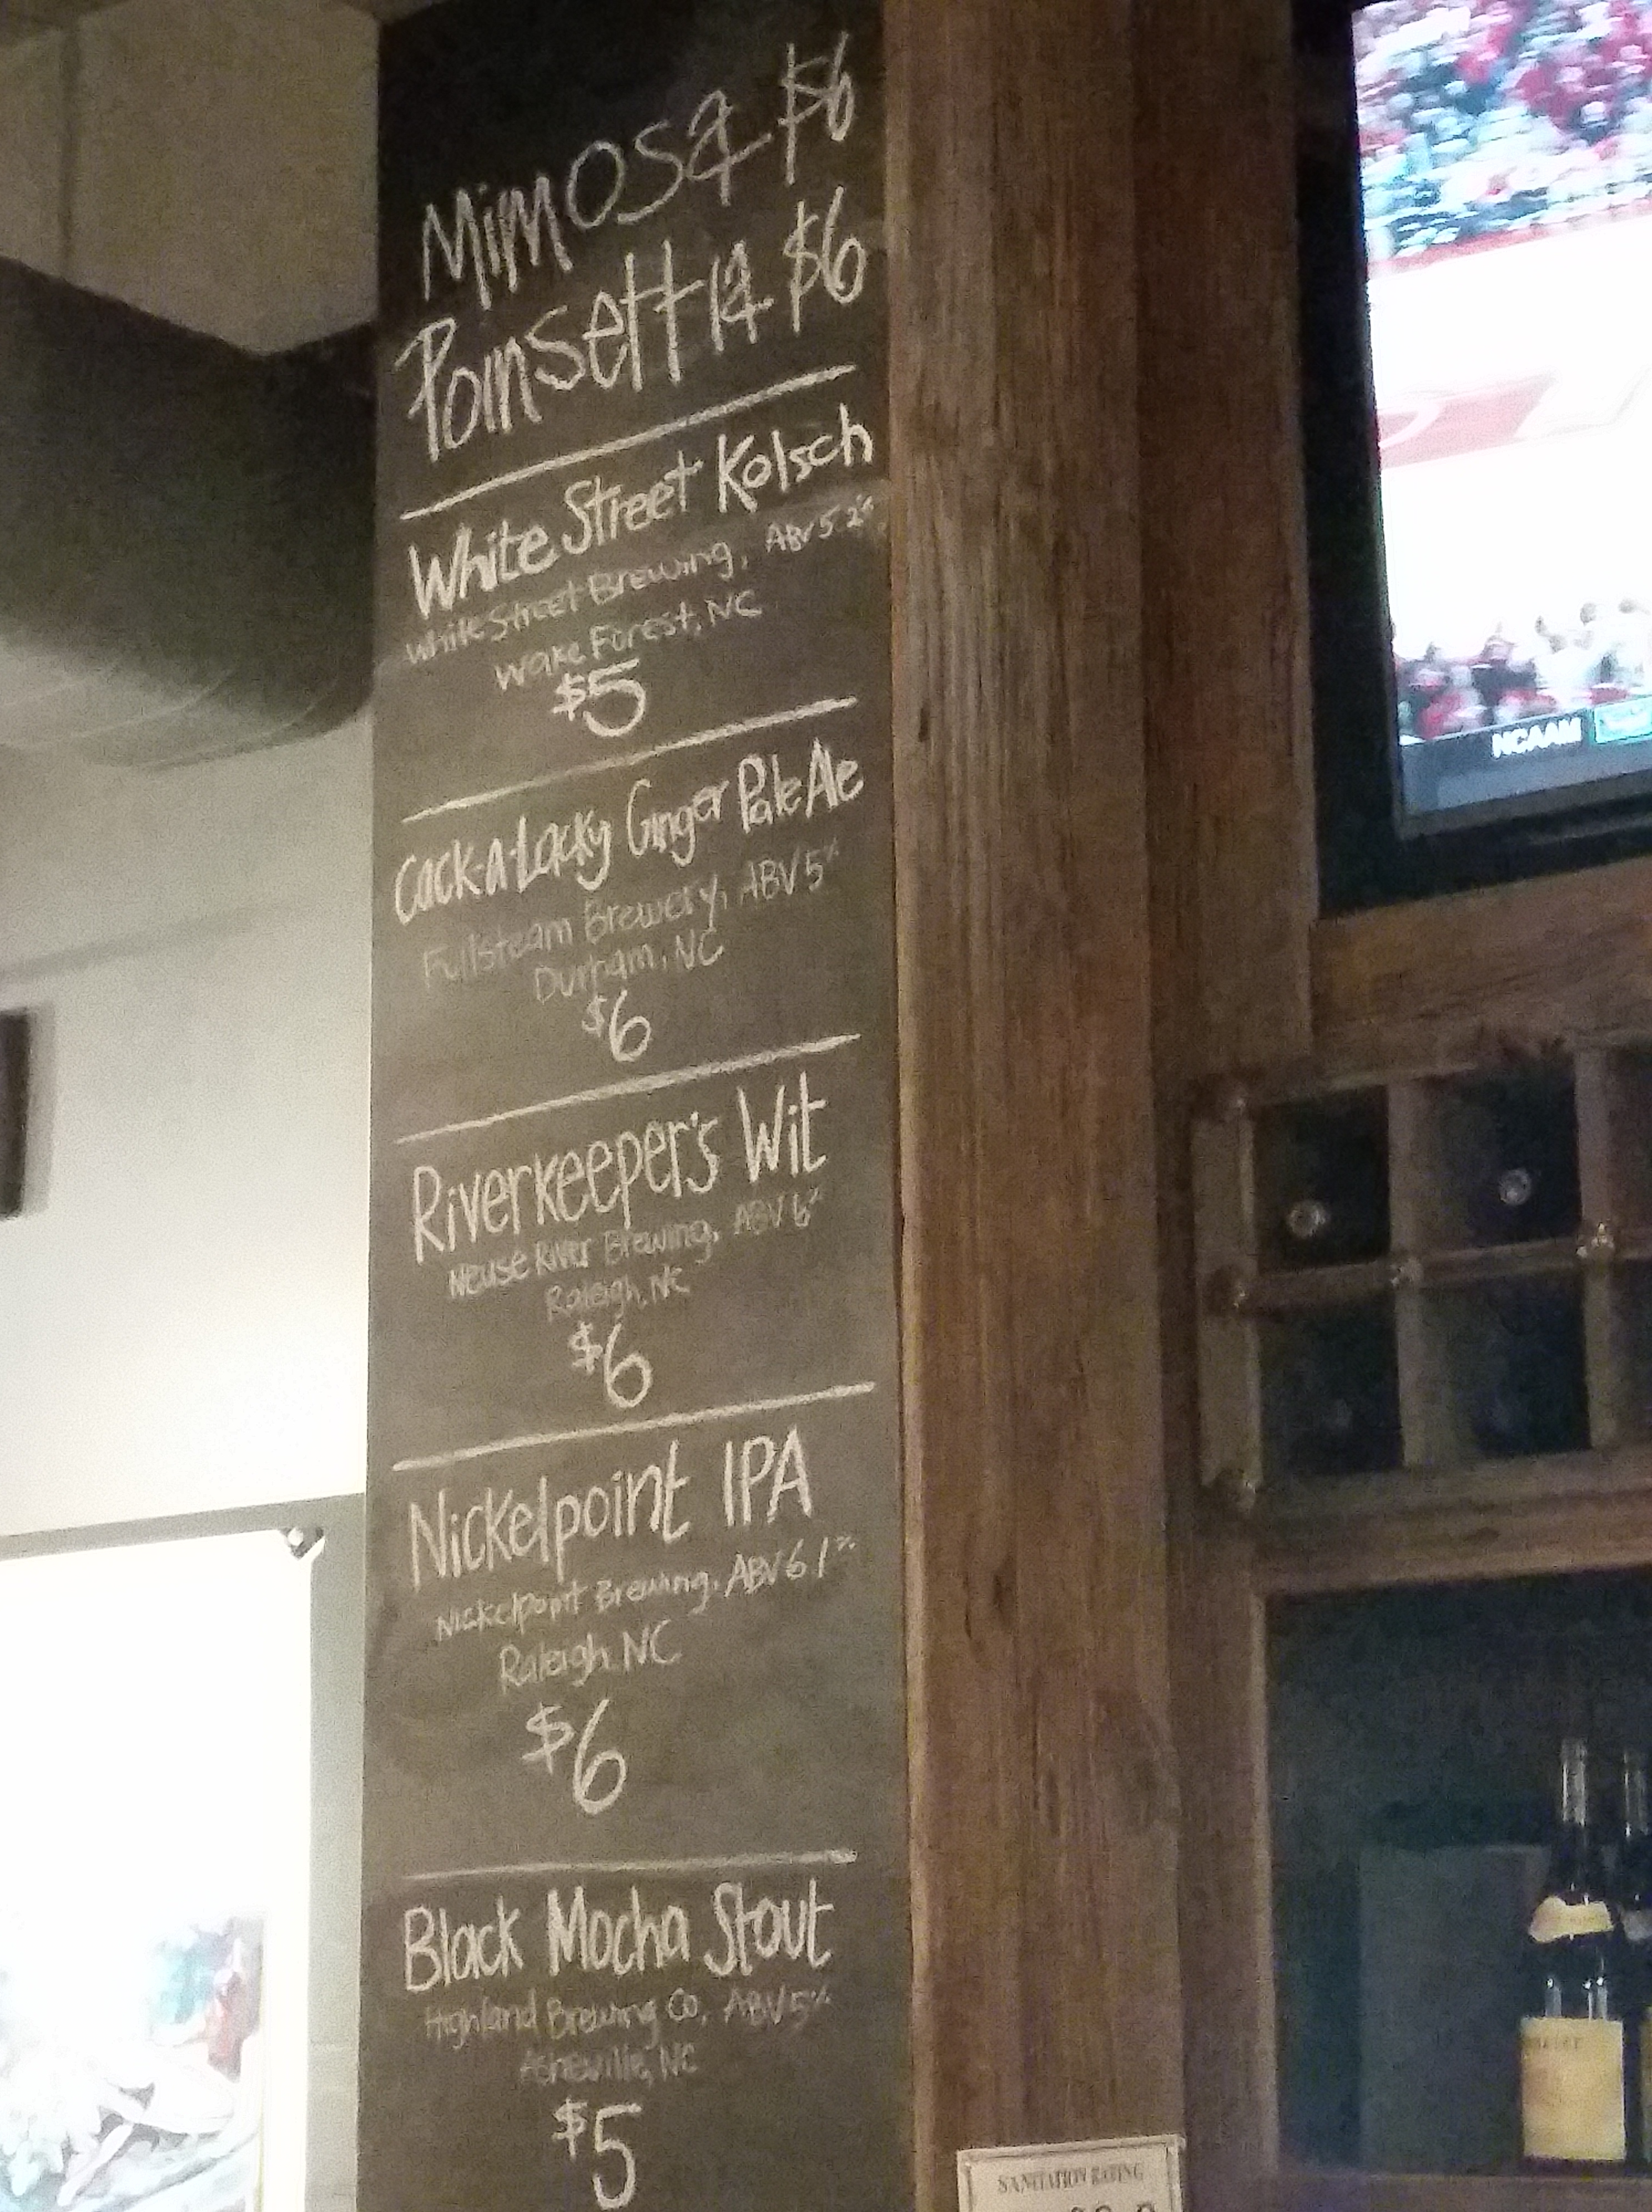 Mimosa $6
Poinsettia $6
White Street Kolsch
White Street Brewing, ABV 5.2%
Wake Forest, NC
$5
Cack-A-Lacky Ginger Pale Ale
Fullsteam Brewery, ABV 5%
Durham, NC
$6
Riverkeeper's Wit
Neuse River Brewing, ABV 6%
Raleigh, NC
$6
Nickelpoint IPA
Nickelpoint Brewing, ABV 6.1%
Raleigh NC
$6
Black Mocha Stout
Highland Brewing Co, ABV 5%
Asheville, NC
$5
NCAAM
SANITATION RATING